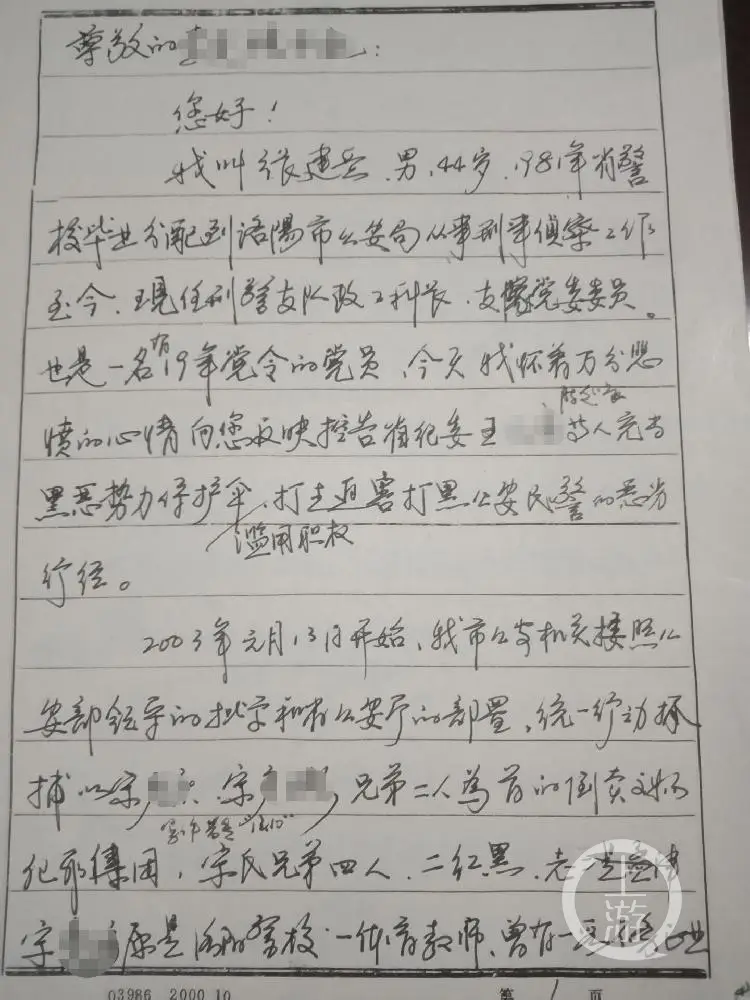 尊敬的
您好！
我叫张建兵、男、44岁、1981年省警
校毕业分配到洛陽市公安局从事刑事侦察工作
至今、现任刑警支队政工科长、支队党委委员。
也是一名有19年党令的党员、今天我怀着万分悲
愤的心情向您反映控告省纪委王 等人充当
黑恶势力保护伞、打击迫害打黑公安民警的恶劣
滥用职权
行径。
2003年元月13日开始、我市公安机关按照公
安部领导的批示和省公安厅的部署、统一行动抓
捕以宋 宋 兄弟二人為首的倒卖文物
犯罪集团，宋氏兄弟四人、二红黑、老
宋 原是洛阳警校一体育教师、曾有一
03986 2000.10 第 1 页
上游